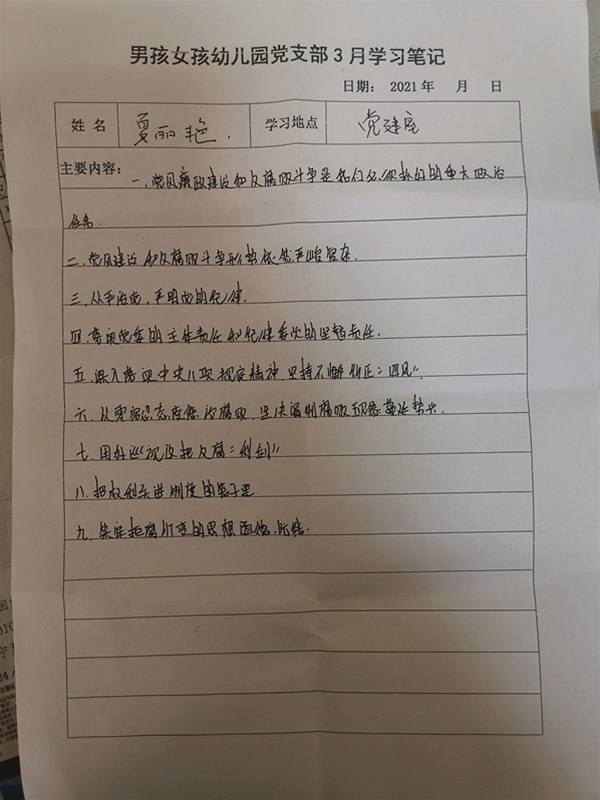 男孩女孩幼儿园党支部3月学习笔记
日期： 2021年 月 日
姓名 夏丽艳. 学习地点 党建室
主要内容：
一、党风廉政建设和反腐败斗争是我们必须抓好的重大政治
任务.
二、党风建设和反腐败斗争形势依然严峻复杂.
三、从严治党，严明党的纪律.
四、落实党委的主体责任和纪律委员的监督责任.
五、深入落实中央八项规定精神，坚持不懈纠正："四风".
六、从零容忍态度惩治腐败，坚决遏制腐败现象蔓延势头.
七、用好巡视这把反腐："利剑"
八、把权利关进制度的笼子里
九、筑牢拒腐防变的思想道德防线.